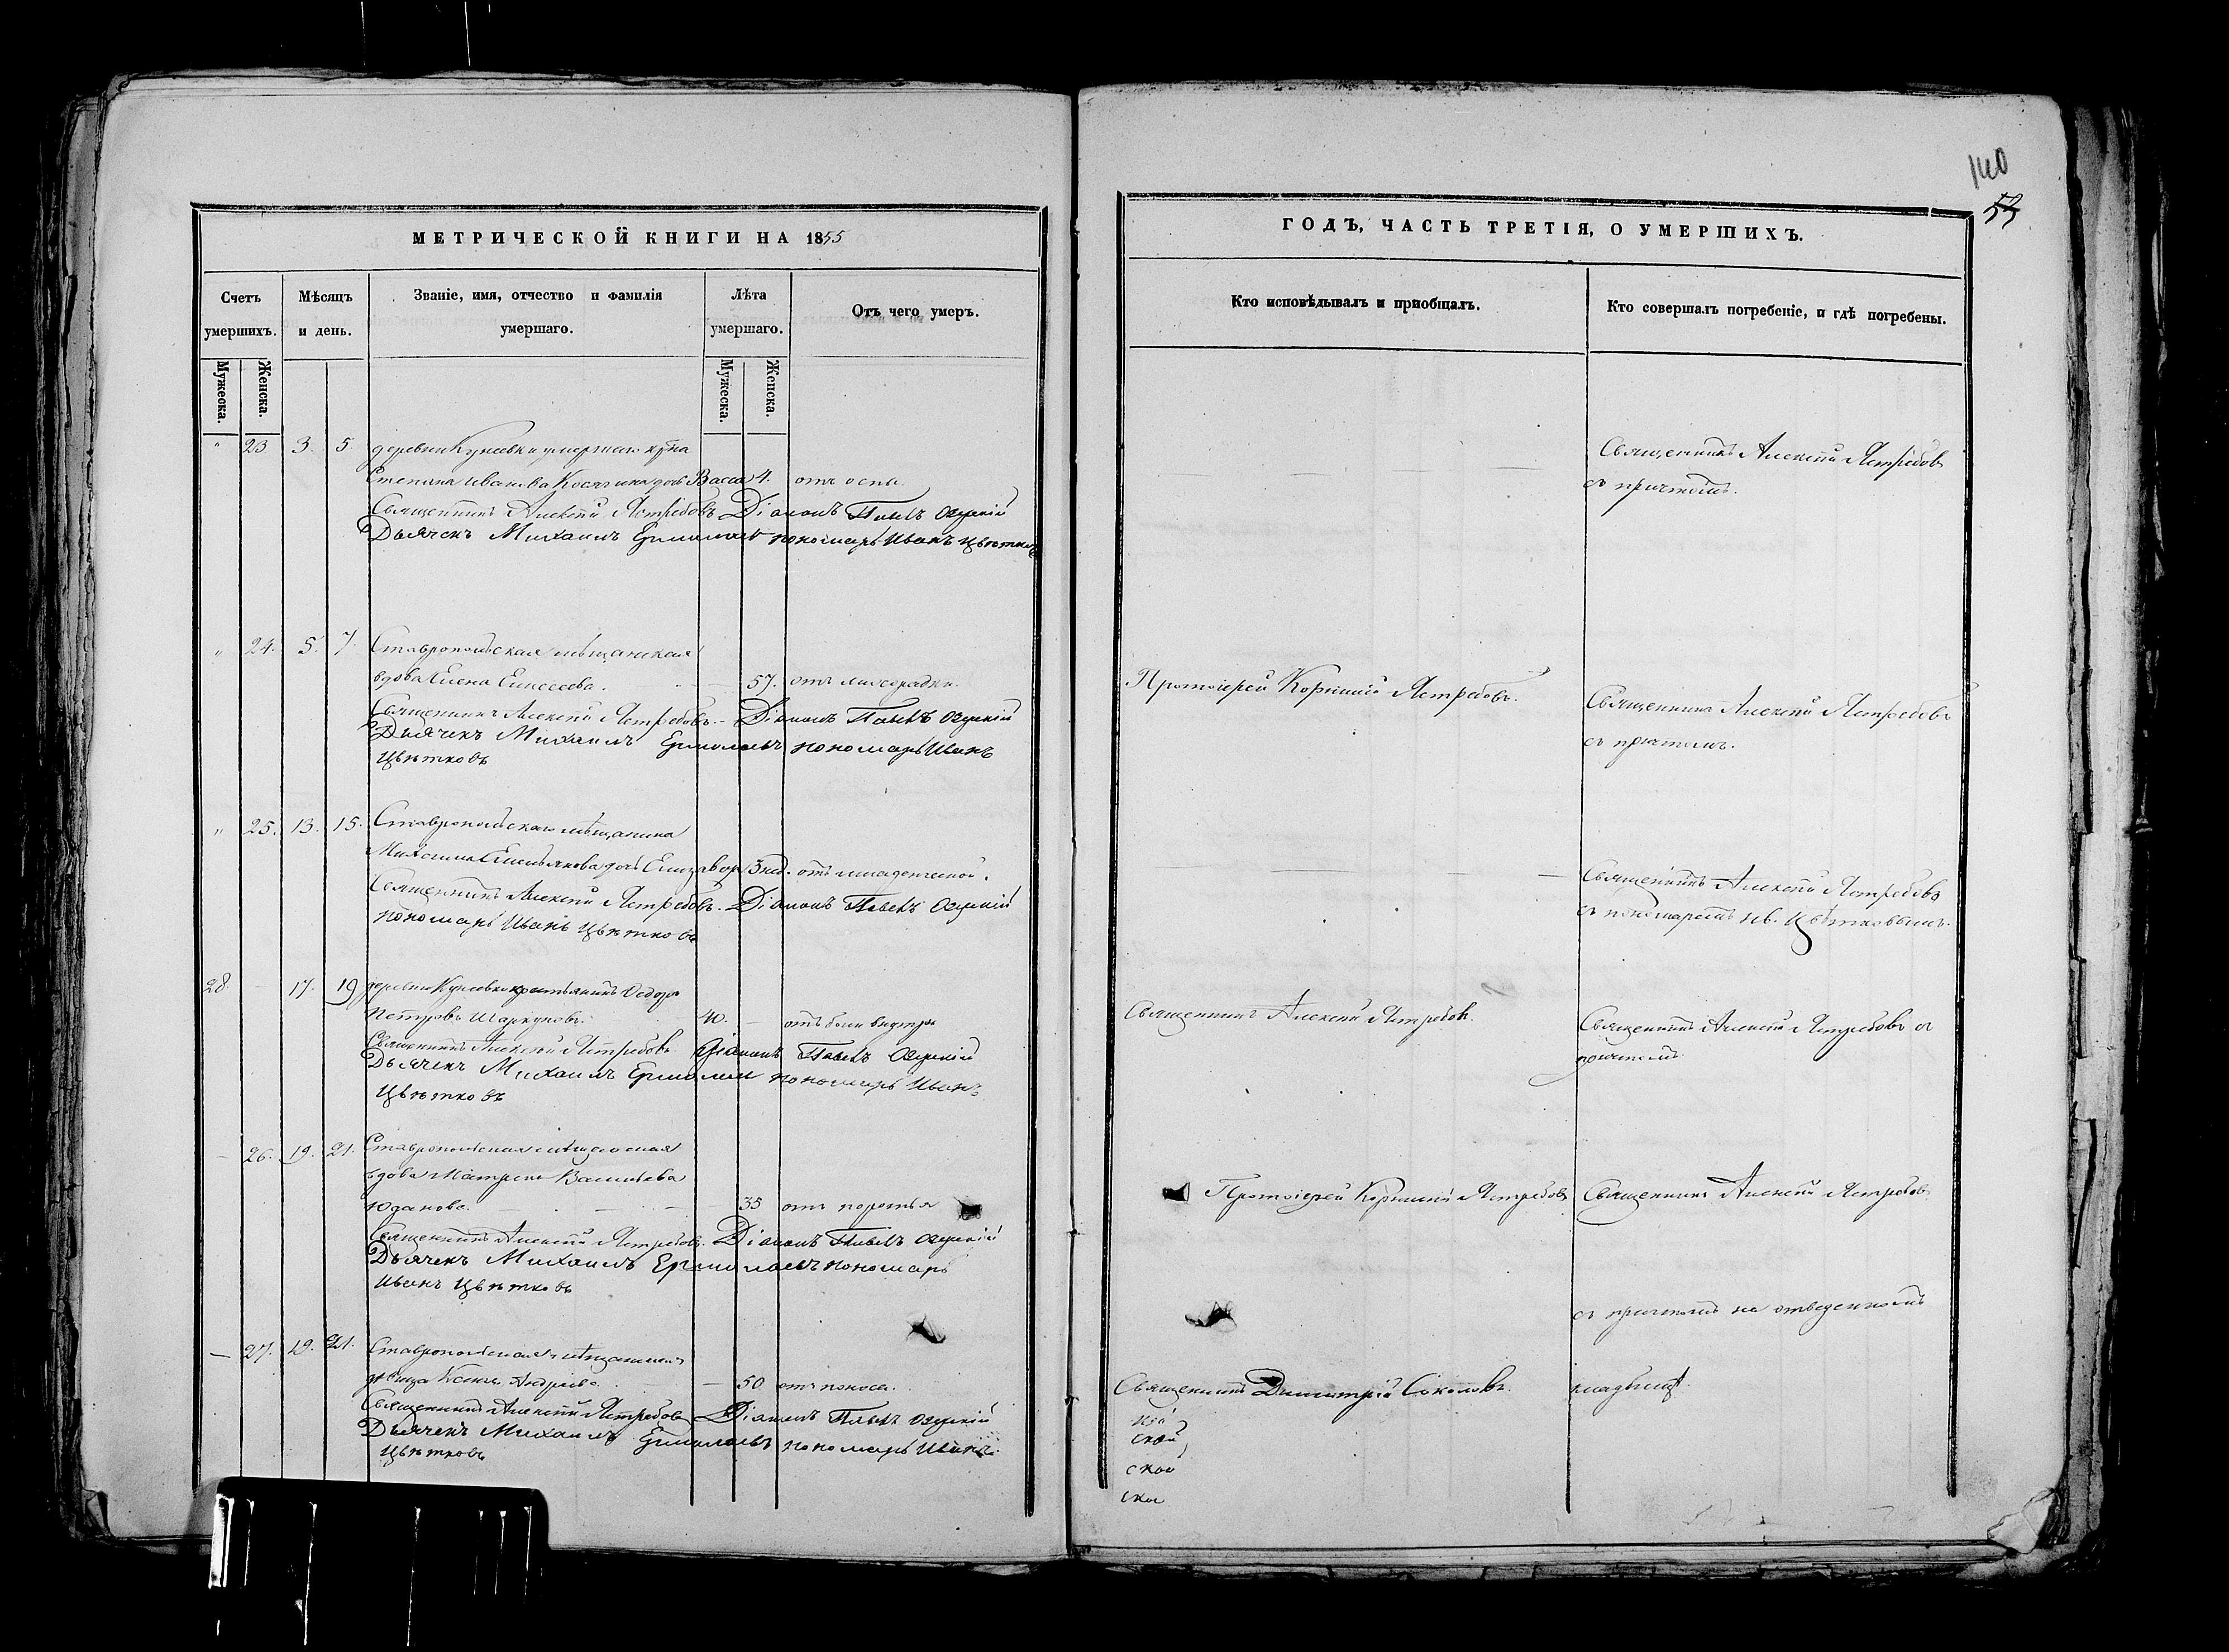 140
53
МЕТРИЧЕСКОЙ КНИГИ НА 1855
ГОДЪ, ЧАСТЬ ТРЕТІЯ, О УМЕРШИХЪ.
Счетъ умершихъ.
Мѣсяцъ и день.
Званіе, имя, отчество и фамилія умершаго.
Лѣта умершаго.
Отъ чего умеръ.
Кто исповѣдывалъ и приобщалъ.
Кто совершалъ погребеніе, и гдѣ погребены.
Мужеска.
Женска.
Мужеска.
Женска.
" 23 3. 5. деревни Кунеевки
Степана Иванова дочь Васса 4. отъ оспы.
Священникъ Алексѣй Ястребовъ
съ причтомъ.
Священникъ Алексѣй Ястребовъ Діаконъ Павелъ
Дьячекъ Михаилъ Ермолаевъ пономарь Иванъ Цвѣтковъ
" 24. 5. 7. Ставропольская мѣщанская
вдова Елена Елисеева. 57. отъ лихорадки.
Протоіерей Ястребовъ.
Священникъ Алексѣй Ястребовъ
съ причтомъ.
Священникъ Алексѣй Ястребовъ. Діаконъ Павелъ
Дьячекъ Михаилъ Ермолаевъ пономарь Иванъ
Цвѣтковъ
" 25. 13. 15. Ставропольскаго мѣщанина
Михаила дочь 3 нед. отъ младенческой.
Священникъ Алексѣй Ястребовъ
съ пономаремъ Ив. Цвѣтковымъ.
Священникъ Алексѣй Ястребовъ. Діаконъ Павелъ
пономарь Иванъ Цвѣтковъ
28 - 17. 19 деревни Кунеевки крестьянинъ Ѳедоръ
Петровъ Шаркуновъ. 40. - отъ боли внутри
Священникъ Алексѣй Ястребовъ.
Священникъ Алексѣй Ястребовъ съ
причтомъ
Священникъ Алексѣй Ястребовъ Діаконъ Павелъ
Дьячекъ Михаилъ Ермолаевъ пономарь Иванъ
Цвѣтковъ
- 26. 19. 21. Ставропольская мѣщанская
вдова Матрена Васильева
Юданова. 35 отъ
Протоіерей Ястребовъ
Священникъ Алексѣй Ястребовъ
съ причтомъ на отведенномъ
кладбищѣ.
Священникъ Алексѣй Ястребовъ. Діаконъ Павелъ
Дьячекъ Михаилъ Ермолаевъ пономарь
Иванъ Цвѣтковъ
- 27. 19. 21. Ставропольская мѣщанская
дѣвица Андреева. 50 отъ поноса.
Священникъ Димитрій Соколовъ.
Священникъ Алексѣй Ястребовъ Діаконъ Павелъ
Дьячекъ Михаилъ Ермолаевъ пономарь Иванъ
Цвѣтковъ